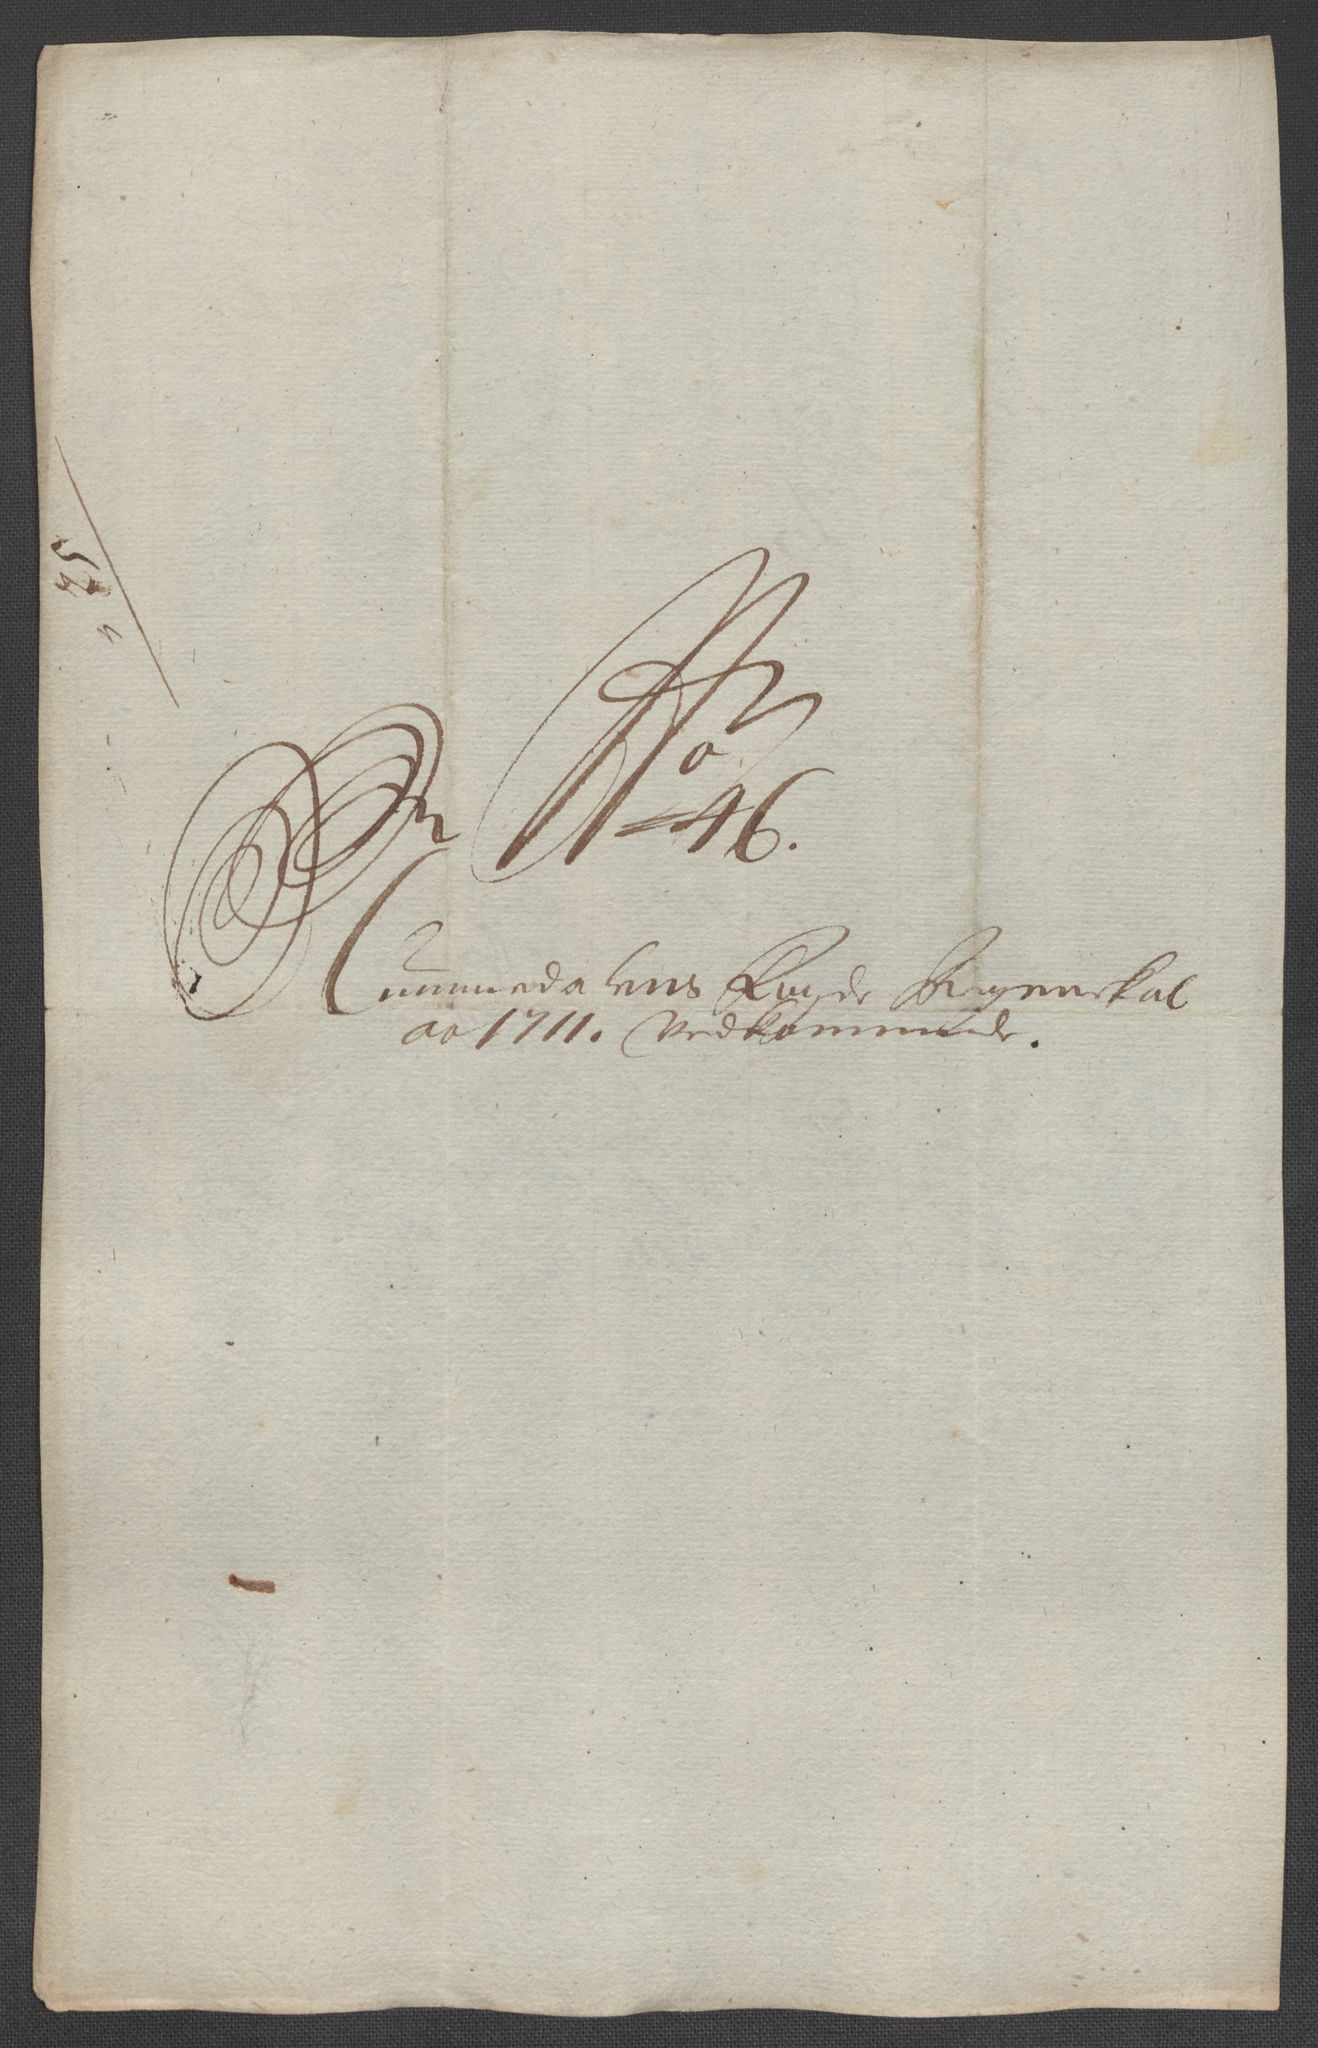 No
46.
Nummedalens Fogde Regenskab
ao 1711. Vedkommende.